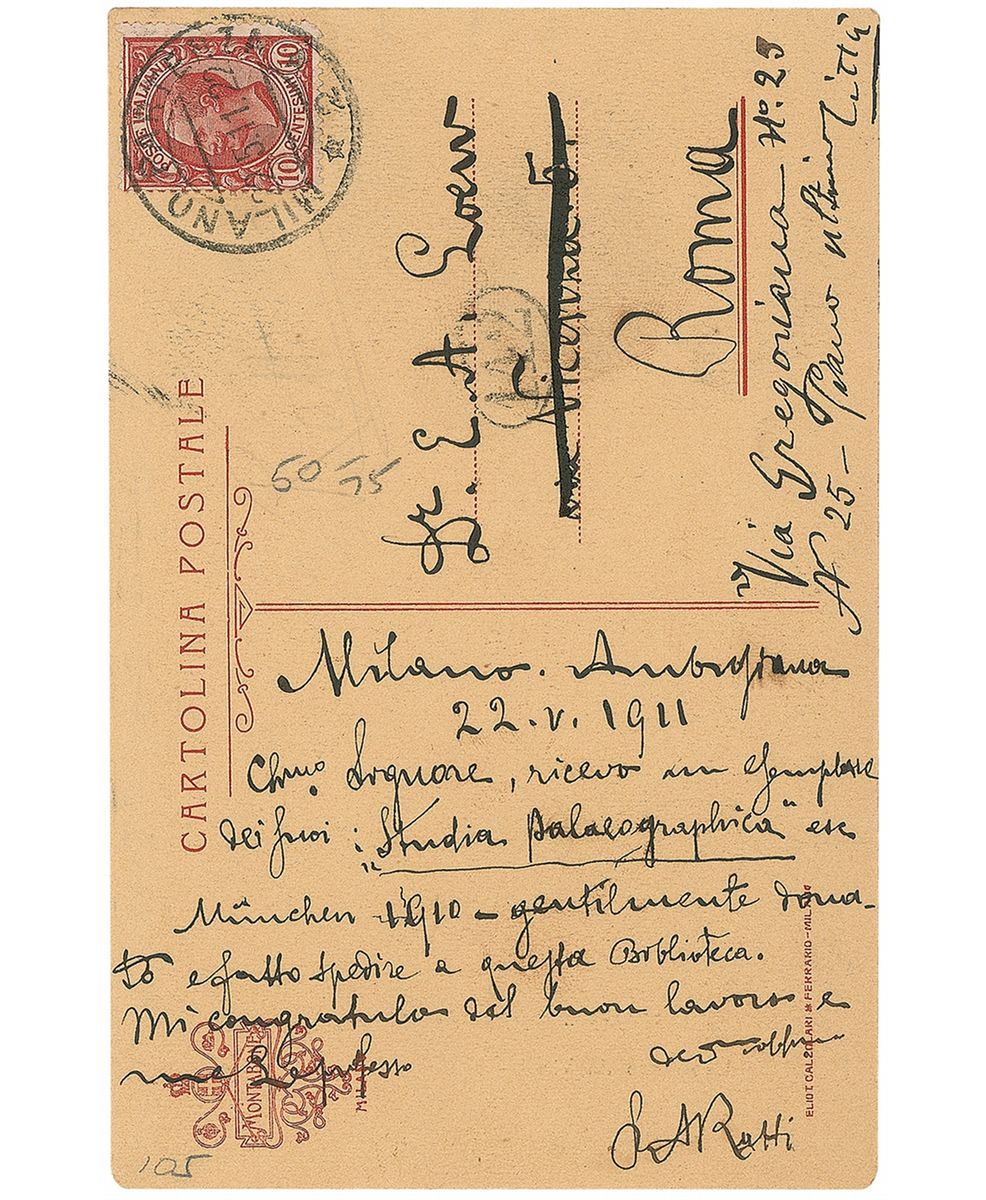 CARTOLINA POSTALE
POSTE ITALIANE
10 CENTESIMI 10
MILANO
Dr. E. A. Loew
Via Vicenza 5.
Roma
Via Gregoriana No. 25
N 25 - Primo ultimo Città
50
15
Milano. Ambrosiana
22. V. 1911
Chmo Signore, ricevo un esemplare
dei suoi : "Studia palaeographica" ec
München 1910 - gentilmente dona-
to e fatto spedire a questa Biblioteca.
Mi congratulo del buon lavoro e
me Le professo
dev obbmo
S. A Ratti
MONTABONE
MILANO
ELIOT. CALZOLARI & FERRARIO - MILANO
105